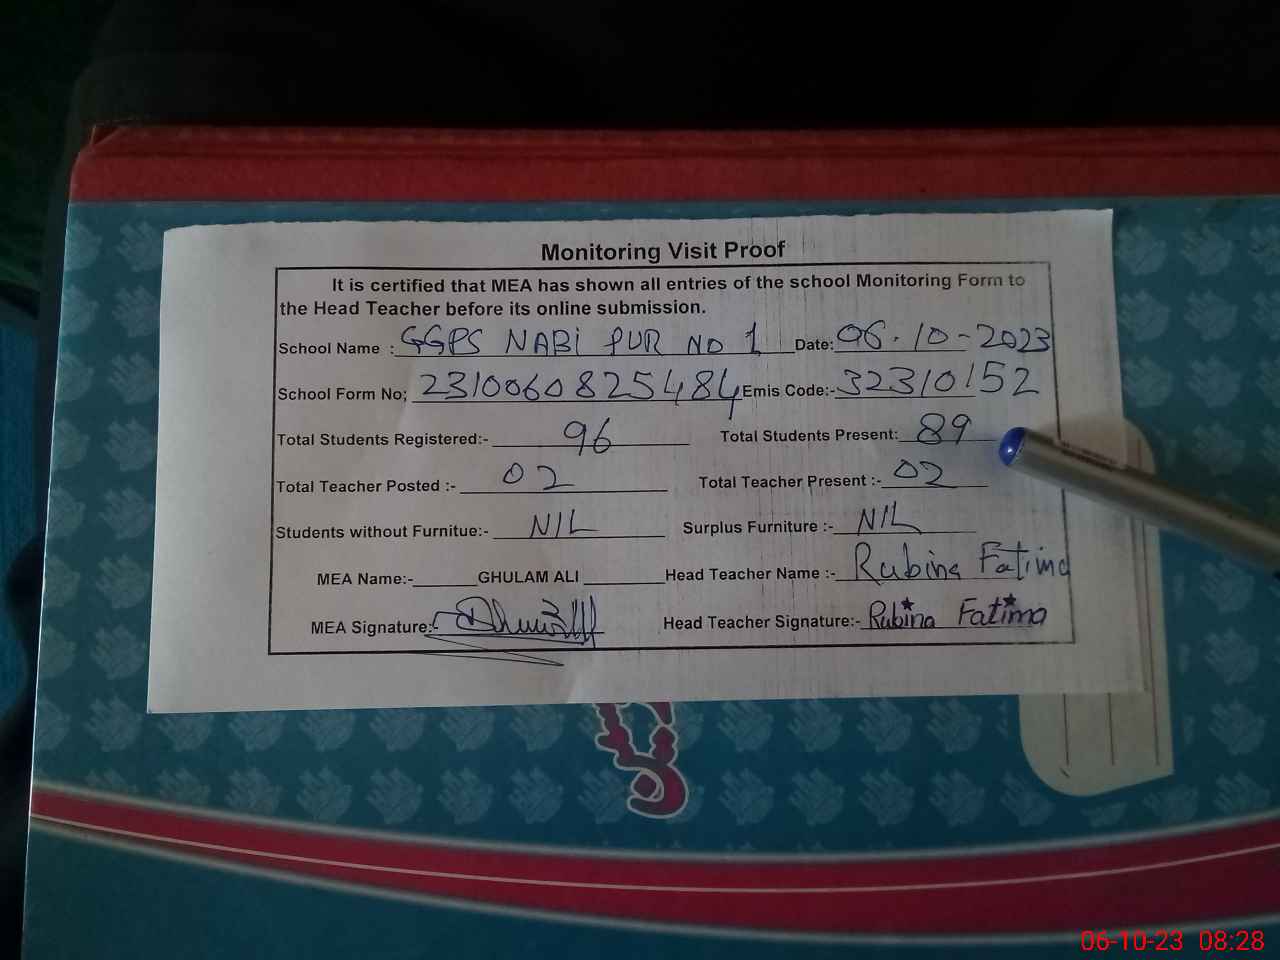 Monitoring Visit Proof
It is certified that MEA has shown all entries of the school Monitoring Form to
the Head Teacher before its online submission.
School Name : GGPS NABI PUR NO 1 Date: 06-10-2023
School Form No; 2310060825484 Emis Code:- 32310152
Total Students Registered:- 96 Total Students Present: 89
Total Teacher Posted :- 02 Total Teacher Present :- 02
Students without Furnitue:- NIL Surplus Furniture :- NIL
MEA Name:- GHULAM ALI Head Teacher Name :- Rubina Fatima
MEA Signature:- Head Teacher Signature:- Rubina Fatima
06-10-23 08:28